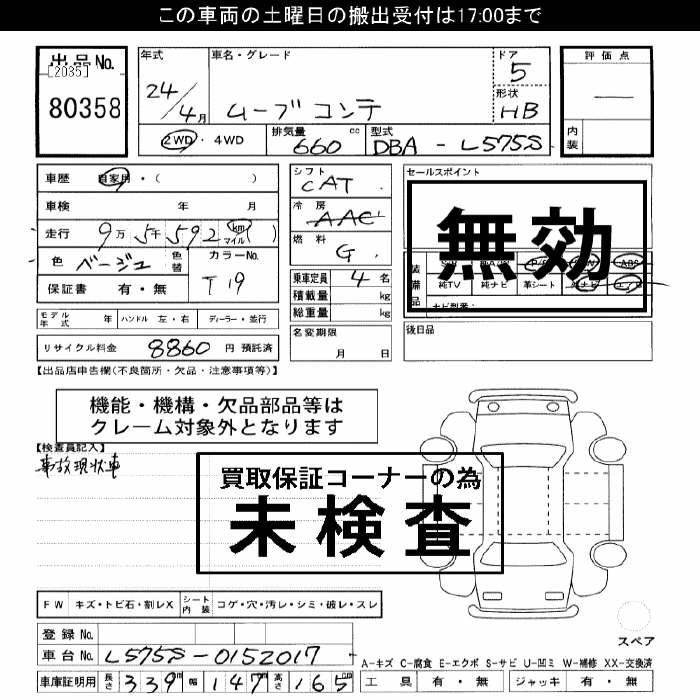 この車両の土曜日の搬出受付は17:00まで
出品No.
[2035]
80358
年式
24/4月
車名・グレード
ムーブコンテ
ドア
5
形状
HB
2WD・4WD
排気量
660 cc
型式
DBA - L575S
評価点
—
内装
車歴 自家用・( )
車検 年 月
走行 9万5千592 km マイル ( )
色 ベージュ 色替
カラーNo.
T19
保証書 有・無
シフト
CAT.
冷房
AAC
燃料
G.
乗車定員 4 名
積載量 kg
総重量 kg
セールスポイント
無効
装備品
ABS
純TV 純ナビ 革シート
モデル年式 年 ハンドル 左・右 ディーラー・並行
リサイクル料金 8860 円 預託済
名変期限
月 日
後日品
【出品店申告欄(不良箇所・欠品・注意事項等)】
機能・機構・欠品部品等は
クレーム対象外となります
【検査員記入】
事故現状車
買取保証コーナーの為
未検査
FW キズ・トビ石・割レX シート内装 コゲ・穴・汚レ・シミ・破レ・スレ
スペア
登録No.
車台No. L575S-0152017
車庫証明用 長さ 339 cm 幅 147 cm 高さ 165 cm
A-キズ C-腐食 E-エクボ S-サビ U-凹ミ W-補修 XX-交換済
工具 有・無 ジャッキ 有・無